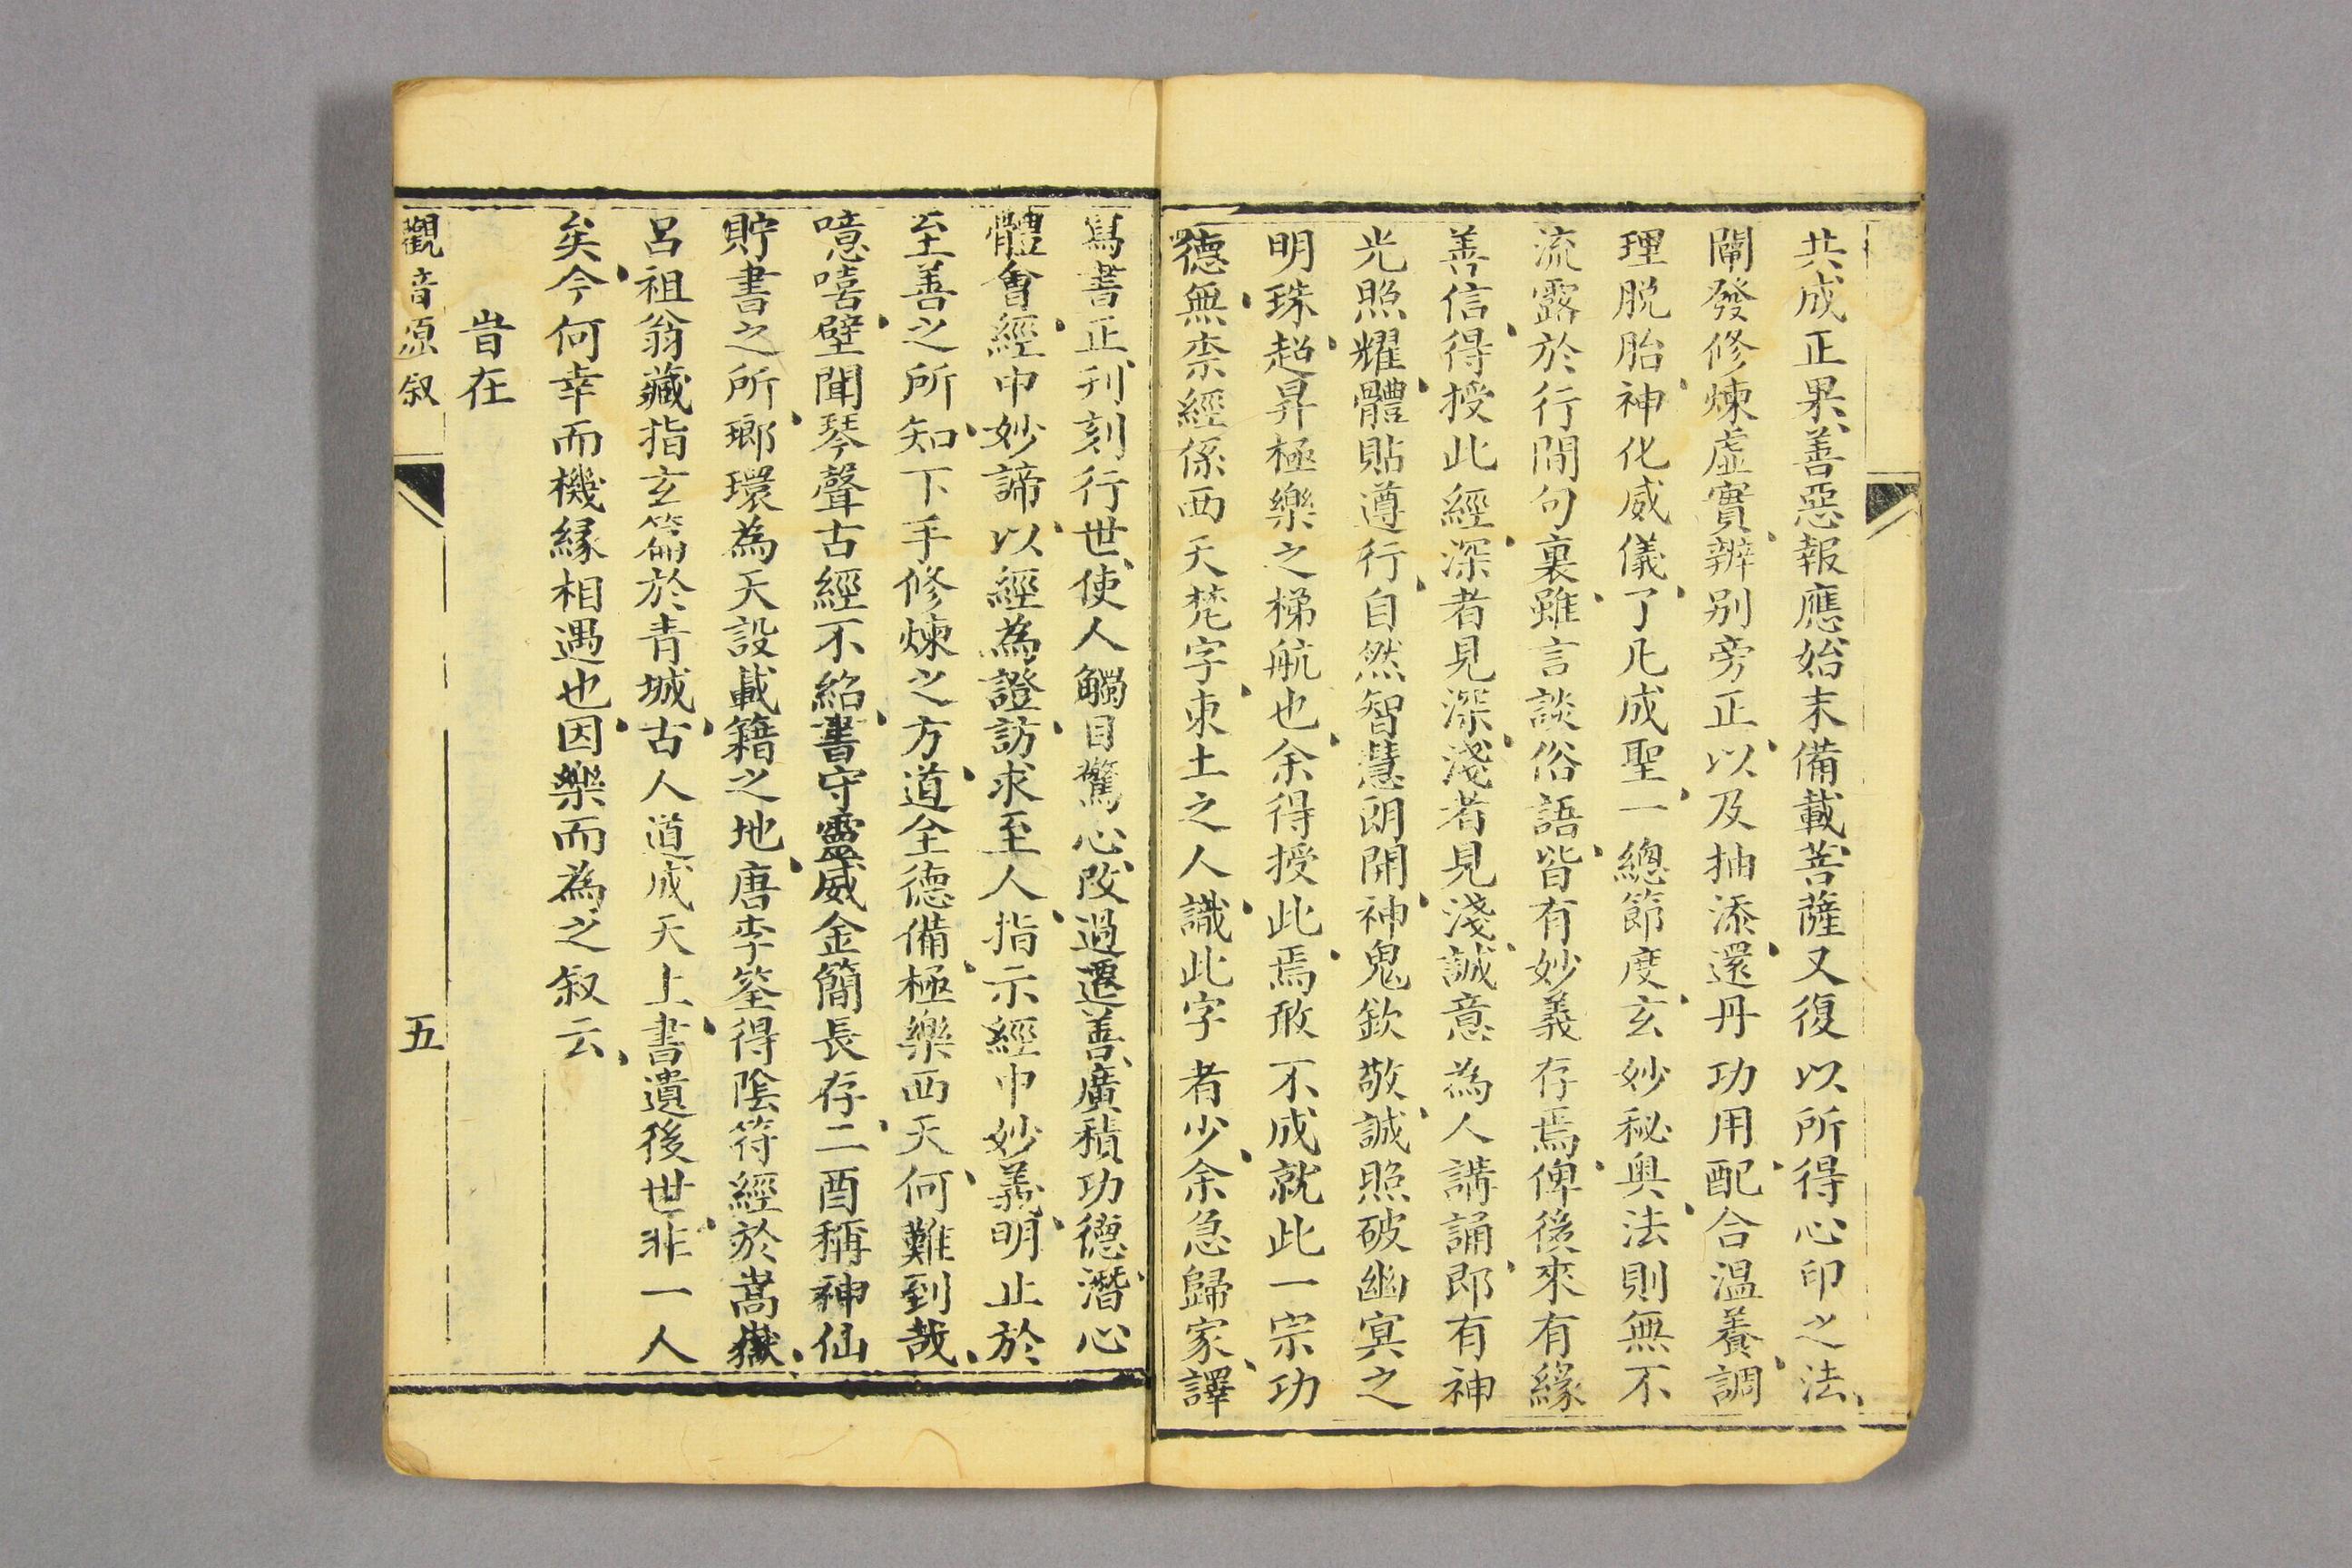 共成正果善惡報應始末備載菩薩又復以所得心印之法
闡發修煉虛實辨别旁正以及抽添還丹功用配合温養調
理脱胎神化威儀了凡成聖一總節度玄妙秘奥法則無不
流露於行間句裏雖言談俗語皆有妙義存焉俾後來有緣
善信得授此經深者見深淺者見淺誠意為人講誦即有神
光照耀體貼遵行自然智慧朗開神鬼欽敬誠照破幽冥之
明珠超昇極樂之梯航也余得授此焉敢不成就此一宗功
德無柰經係西天梵字東土之人識此字者少余急歸家譯
寫書正刋刻行世使人觸目驚心改過遷善廣積功德潛心
體會經中妙諦以經為證訪求至人指示經中妙義明止於
至善之所知下手修煉之方道全德備極樂西天何難到哉
噫嘻壁聞琴聲古經不絕書守靈威金簡長存二酉稱神仙
貯書之所瑯環為天設載籍之地唐李筌得陰符經於嵩嶽
呂祖翁藏指玄篇於青城古人道成天上書遺後世非一人
矣今何幸而機緣相遇也因樂而為之叙云
旹在
觀音源叙
五